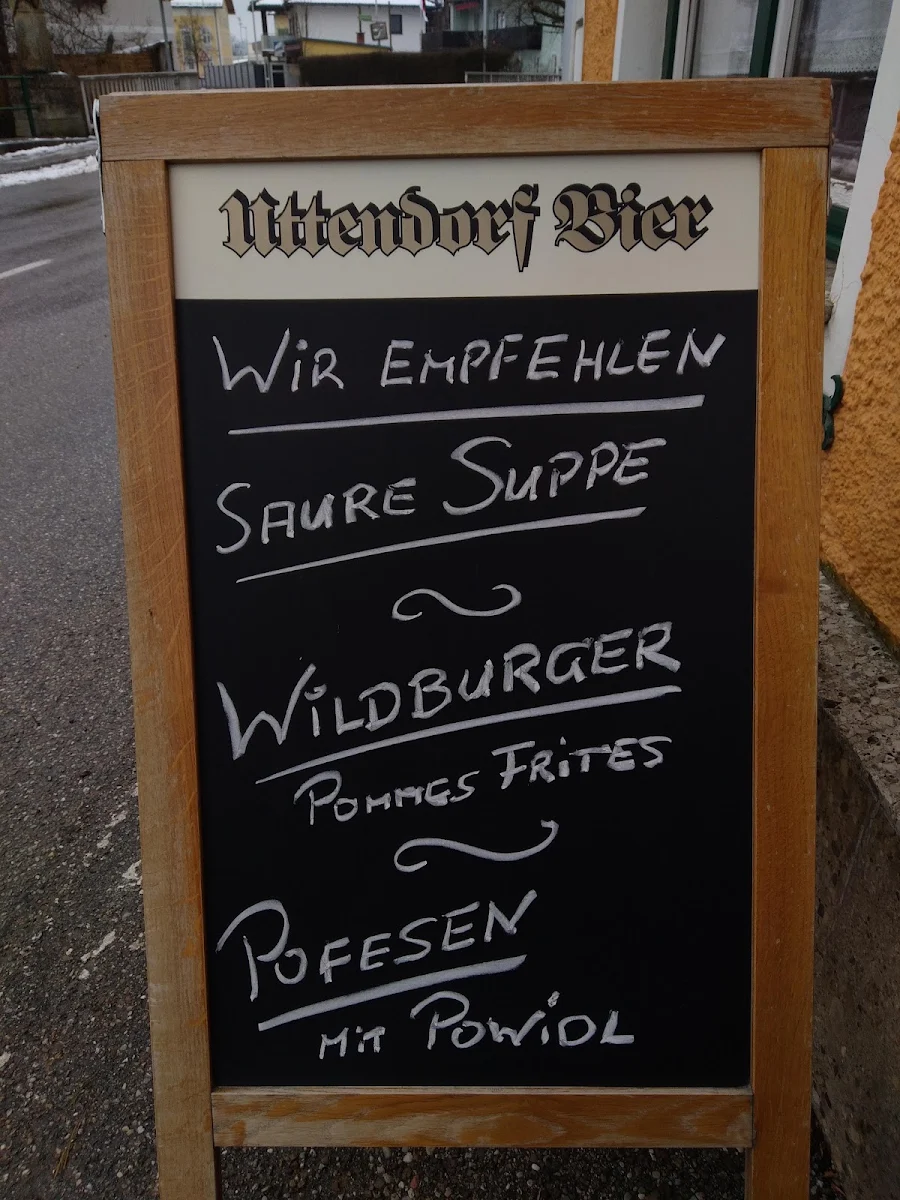 Uttendorf Bier
WiR EMPFEHLEN
SAURE SUPPE
WiLDBURGER
POMMES FRiTES
POFESEN
MiT POWiDL